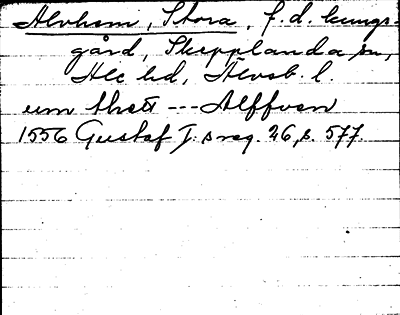 Alvhem, Stora, f.d. kungs-
gård, Skepplanda sn,
Ale hd, Älvsb. l.
um thett --- Alffven
1556 Gustaf I:s reg. 26, s. 577.